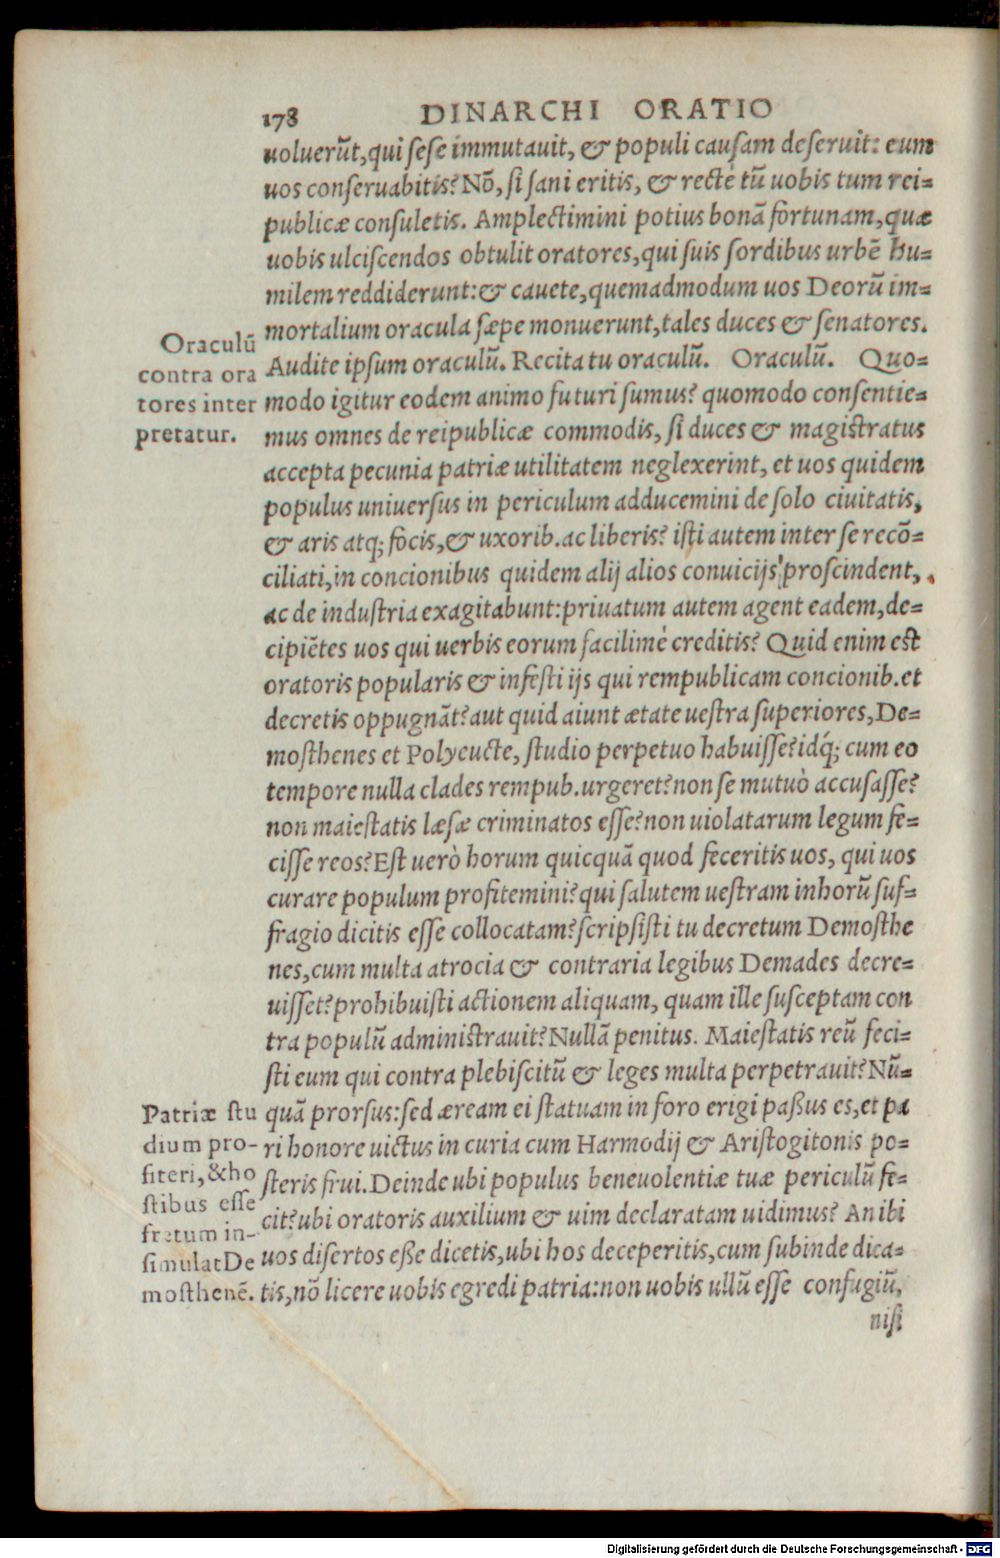 178 DINARCHI ORATIO
uoluerũt, qui sese immutauit, & populi causam deseruit: eum
uos conseruabitis? Nõ, si sani eritis, & rectè tũ uobis tum rei=
publicæ consuletis. Amplectimini potius bonã fortunam, quæ
uobis ulciscendos obtulit oratores, qui suis sordibus urbẽ hu=
milem reddiderunt: & cauete, quemadmodum uos Deorũ im=
mortalium oracula sæpe monuerunt, tales duces & senatores.
Audite ipsum oraculũ. Recita tu oraculũ. Oraculũ. Quo=
modo igitur eodem animo futuri sumus? quomodo consentie=
mus omnes de reipublicæ commodis, si duces & magistratus
accepta pecunia patriæ utilitatem neglexerint, et uos quidem
populus uniuersus in periculum adducemini de solo ciuitatis,
& aris atq; focis, & uxorib. ac liberis? isti autem inter se recõ=
ciliati, in concionibus quidem alij alios conuicijs proscindent,
ac de industria exagitabunt: priuatum autem agent eadem, de=
cipiẽtes uos qui uerbis eorum facilimè creditis? Quid enim est
oratoris popularis & infesti ijs qui rempublicam concionib. et
decretis oppugnãt? aut quid aiunt ætate uestra superiores, De=
mosthenes et Polyeucte, studio perpetuo habuisse? idq́; cum eo
tempore nulla clades rempub. urgeret? non se mutuò accusasse?
non maiestatis læsæ criminatos esse? non uiolatarum legum fe=
cisse reos? Est uerò horum quicquã quod feceritis uos, qui uos
curare populum profitemini? qui salutem uestram in horũ suf=
fragio dicitis esse collocatam? scripsisti tu decretum Demosthe
nes, cum multa atrocia & contraria legibus Demades decre=
uisset? prohibuisti actionem aliquam, quam ille susceptam con
tra populũ administrauit? Nullã penitus. Maiestatis reũ feci=
sti eum qui contra plebiscitũ & leges multa perpetrauit? Nũ=
quã prorsus: sed æream ei statuam in foro erigi paßus es, et pa
ri honore uictus in curia cum Harmodij & Aristogitonis po=
steris frui. Deinde ubi populus beneuolentiæ tuæ periculũ fe=
cit? ubi oratoris auxilium & uim declaratam uidimus? An ibi
uos disertos eße dicetis, ubi hos deceperitis, cum subinde dica=
tis, nõ licere uobis egredi patria: non uobis ullũ esse confugiũ,
nisi
Oraculũ
contra ora
tores inter
pretatur.
Patriæ stu
dium pro-
fiteri, & ho
stibus esse
fretum in-
simulat De
mosthenẽ.
Digitalisierung gefördert durch die Deutsche Forschungsgemeinschaft - DFG